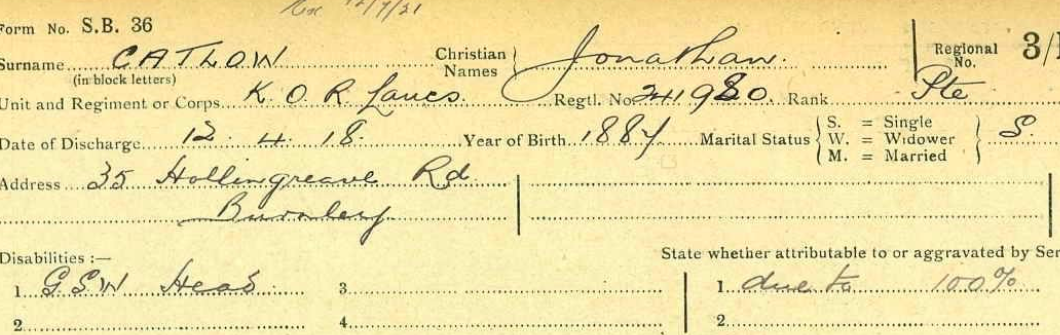 12/7/21
Form No. S.B. 36
Surname CATLOW Christian Names } Jonathan. Regional No. 3/
(in block letters)
Unit and Regiment or Corps. K. O. R. Lancs. Regtl. No. 241980 Rank Pte
Date of Discharge 12. 4. 18. Year of Birth 1887 Marital Status { S. = Single W. = Widower M. = Married } S.
Address 35 Hollingreave Rd
Burnley
Disabilities :— State whether attributable to or aggravated by Ser
1. GSW Head 3. 1. due to 100%
2. 4. 2.